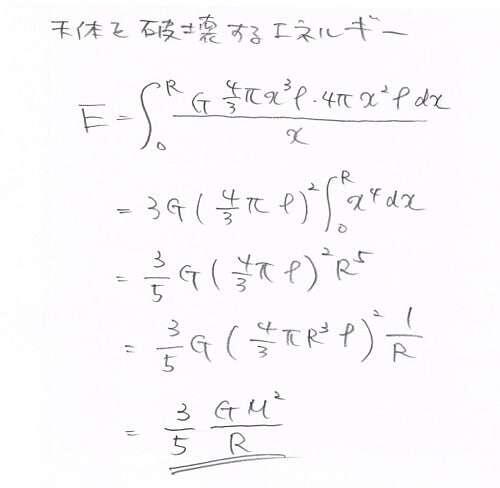 天体を破壊するエネルギー
E = ∫₀ᴿ (G 4/3 πx³ρ · 4πx²ρ dx) / x
= 3G (4/3 πρ)² ∫₀ᴿ x⁴ dx
= 3/5 G (4/3 πρ)² R⁵
= 3/5 G (4/3 πR³ρ)² 1/R
= 3/5 GM²/R